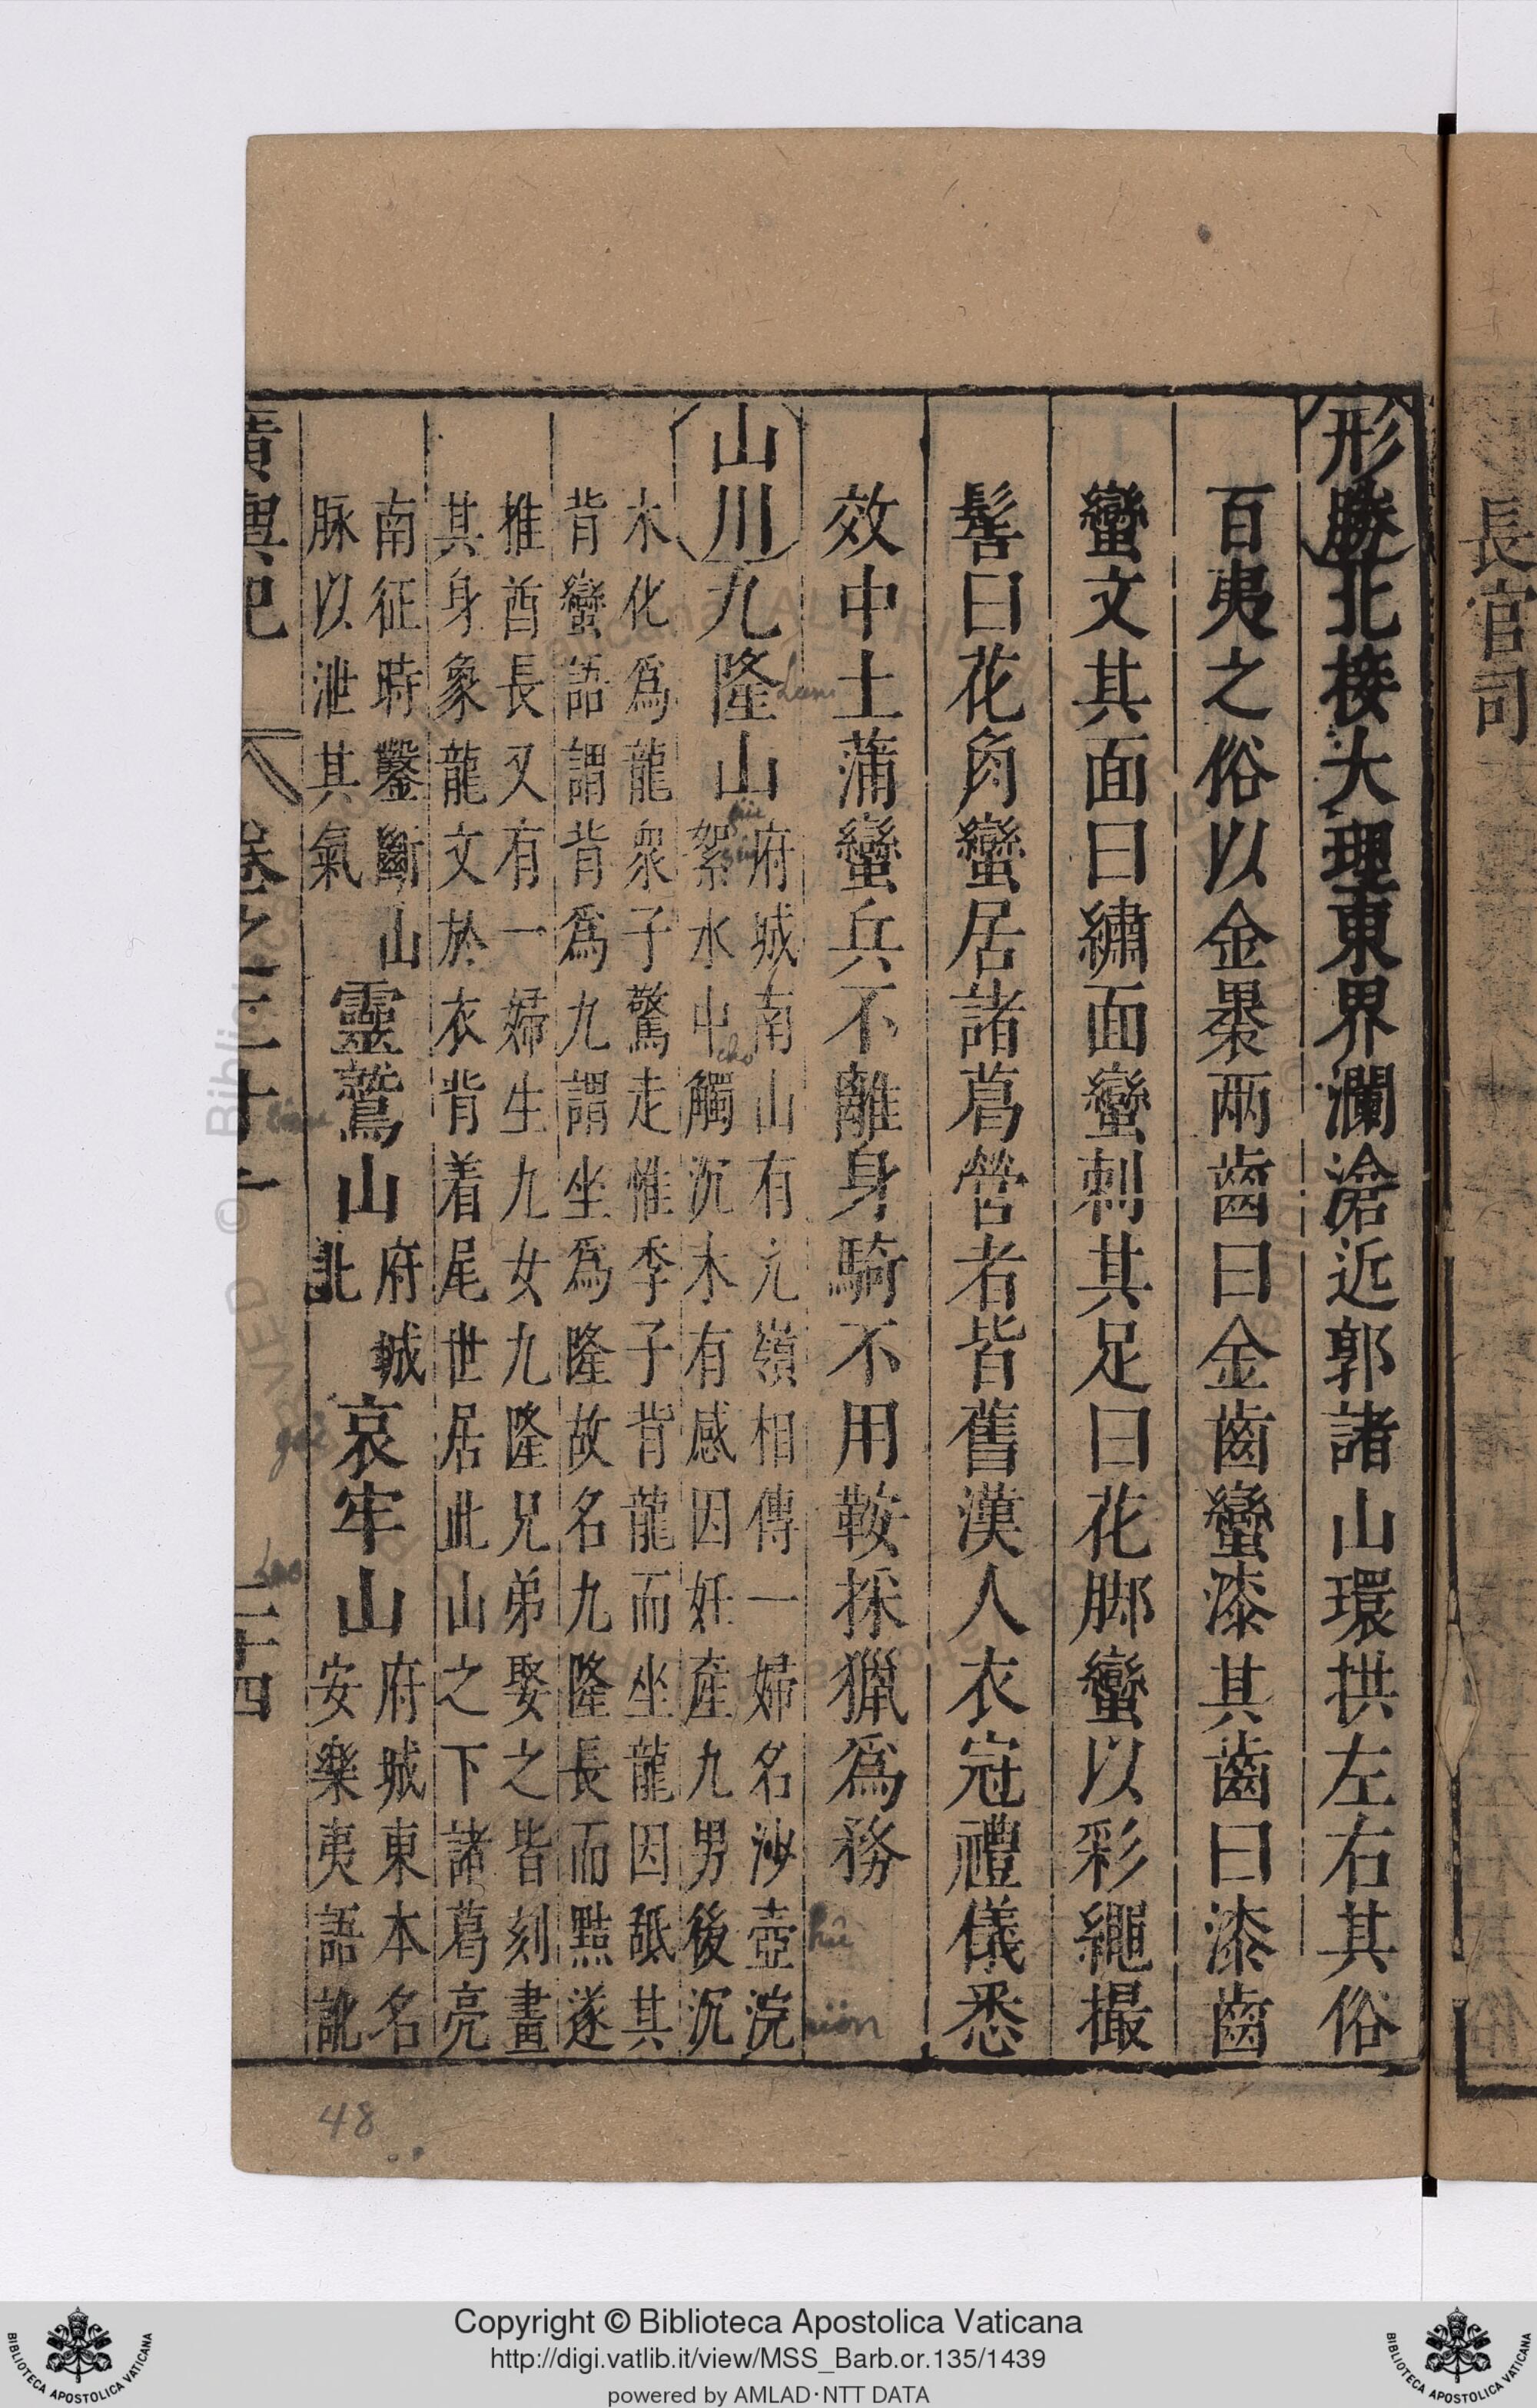 長官司
形勝北接大理東界瀾滄近郭諸山環拱左右其俗
百夷之俗以金褁兩齒曰金齒蠻漆其齒曰漆齒
蠻文其面曰繡面蠻刺其足曰花脚蠻以彩繩撮
髻曰花角蠻居諸葛營者皆舊漢人衣冠禮儀悉
效中土蒲蠻兵不離身騎不用鞍採獵爲務
山川九隆山府城南山有亢嶺相傳一婦名沙壺浣
絮水中觸沉木有感因妊產九男後沉
木化爲龍衆子驚走惟季子背龍而坐龍因䑛其
背蠻語謂背爲九謂坐爲隆故名九隆長而黠遂
推酋長又有一婦生九女九隆兄弟娶之皆刻畫
其身象龍文於衣背着尾世居此山之下諸葛亮
南征時鑿斷山
脉以泄其氣
靈鷲山府城
北
哀牢山府城東本名
安樂夷語訛
廣輿記
卷之二十一
二十四
48
Copyright © Biblioteca Apostolica Vaticana
http://digi.vatlib.it/view/MSS_Barb.or.135/1439
powered by AMLAD·NTT DATA
BIBLIOTECA APOSTOLICA VATICANA
BIBLIOTECA APOSTOLICA VATICANA